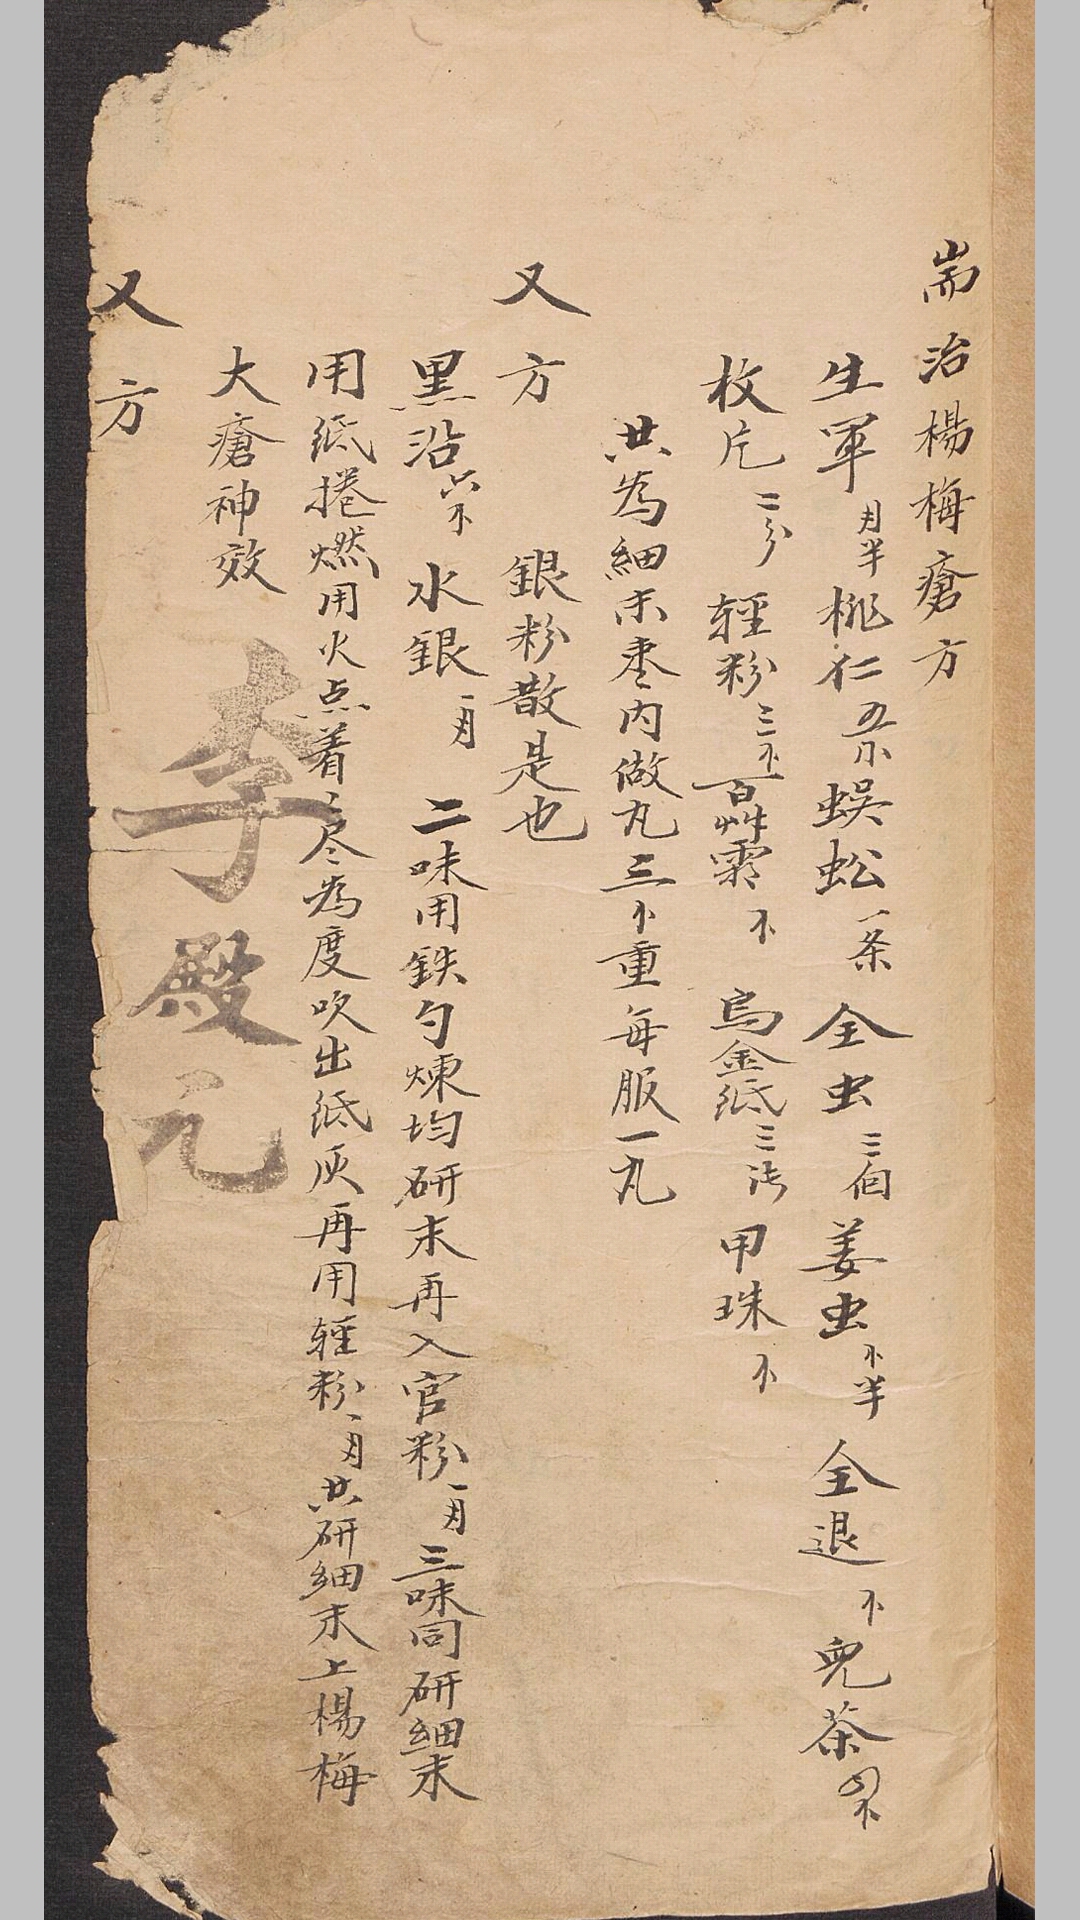 耑治楊梅瘡方
生軍 半 桃仁 五 蜈蚣一条 全虫 三個 姜虫 半 全退 兒茶
枚片 二分 輕粉 三 百艸霜 烏金紙 三 甲珠
共為細末枣內做丸三 重每服一丸
又方 銀粉散是也
黑沿 六 水銀 一 二味用鉄勺煉均研末再入官粉 一 三味同研細末
用紙捲燃用火点着々尽為度吹出紙灰再用輕粉 一 共研細末上楊梅
大瘡神效
又方
李殿元